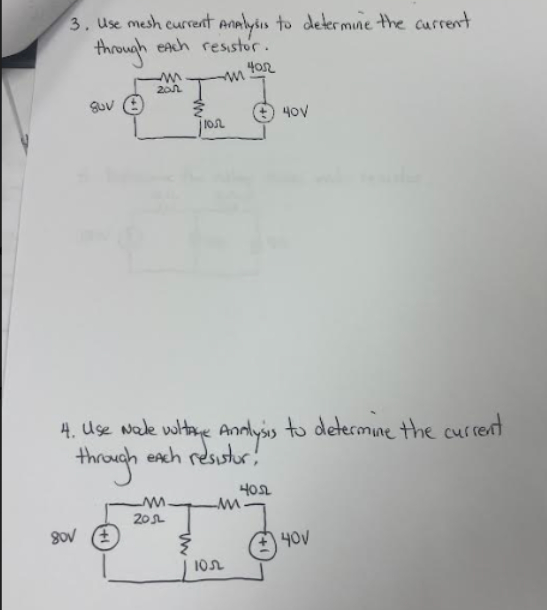 3. Use mesh current Analysis to determine the current
through each resistor.
40Ω
20Ω
80V
+
-
10Ω
+
40V
4. Use Node voltage Analysis to determine the current
through each resistor.
40Ω
20Ω
80V
+
-
10Ω
+
-
40V